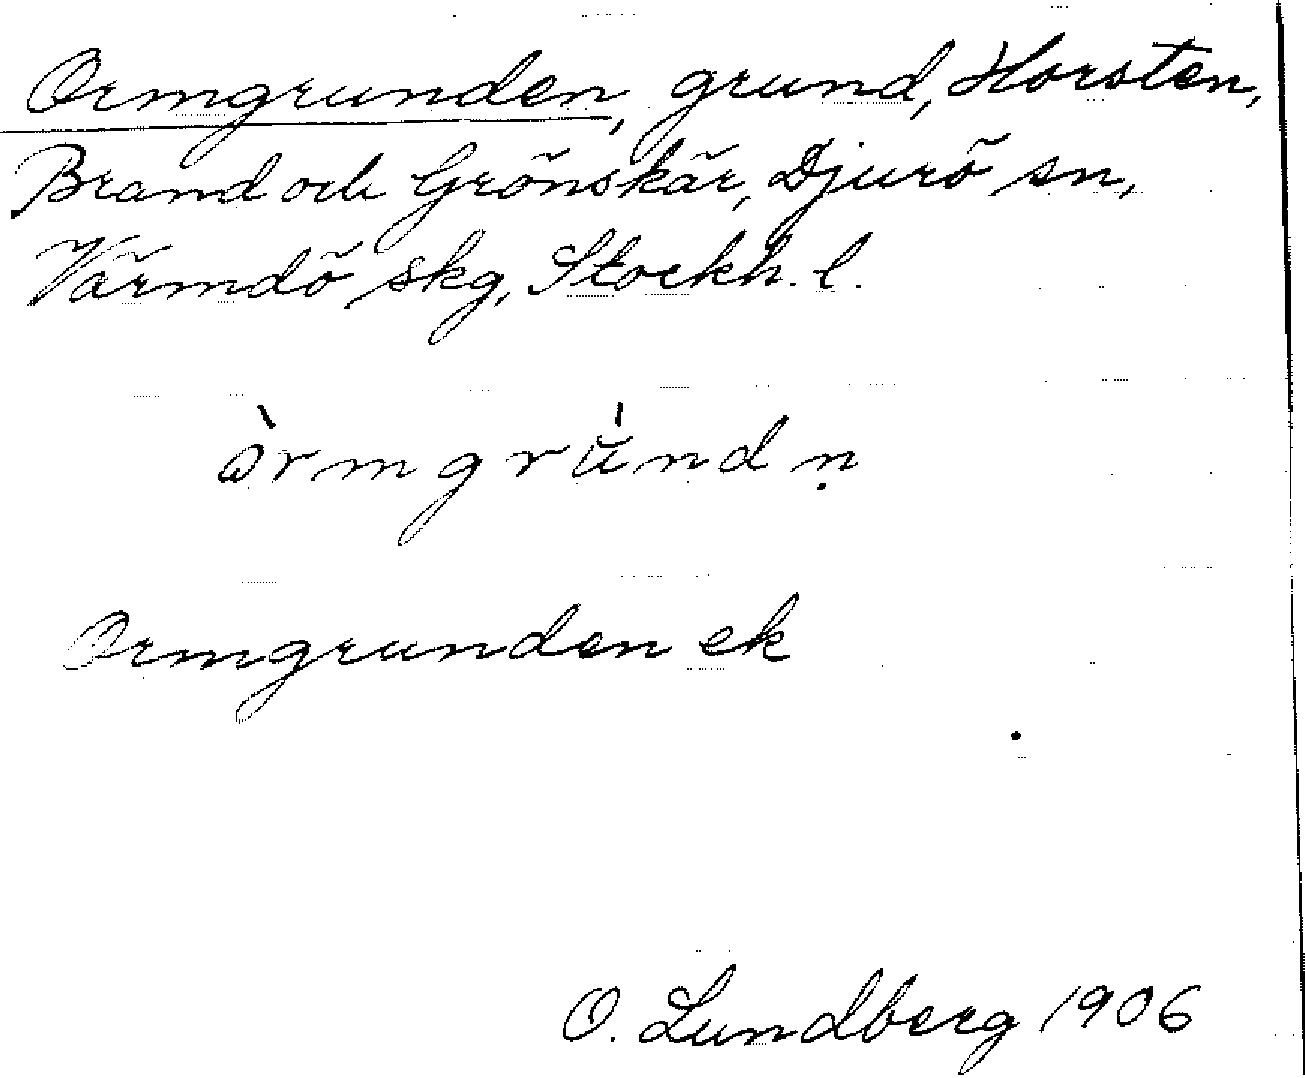 Ormgrunden, grund, Horsten,
Brand och Grönskär, Djurö sn,
Värmdö skg, Stockh. l.
òrmgrúndṇ
Ormgrunden ek
O. Lundberg 1906